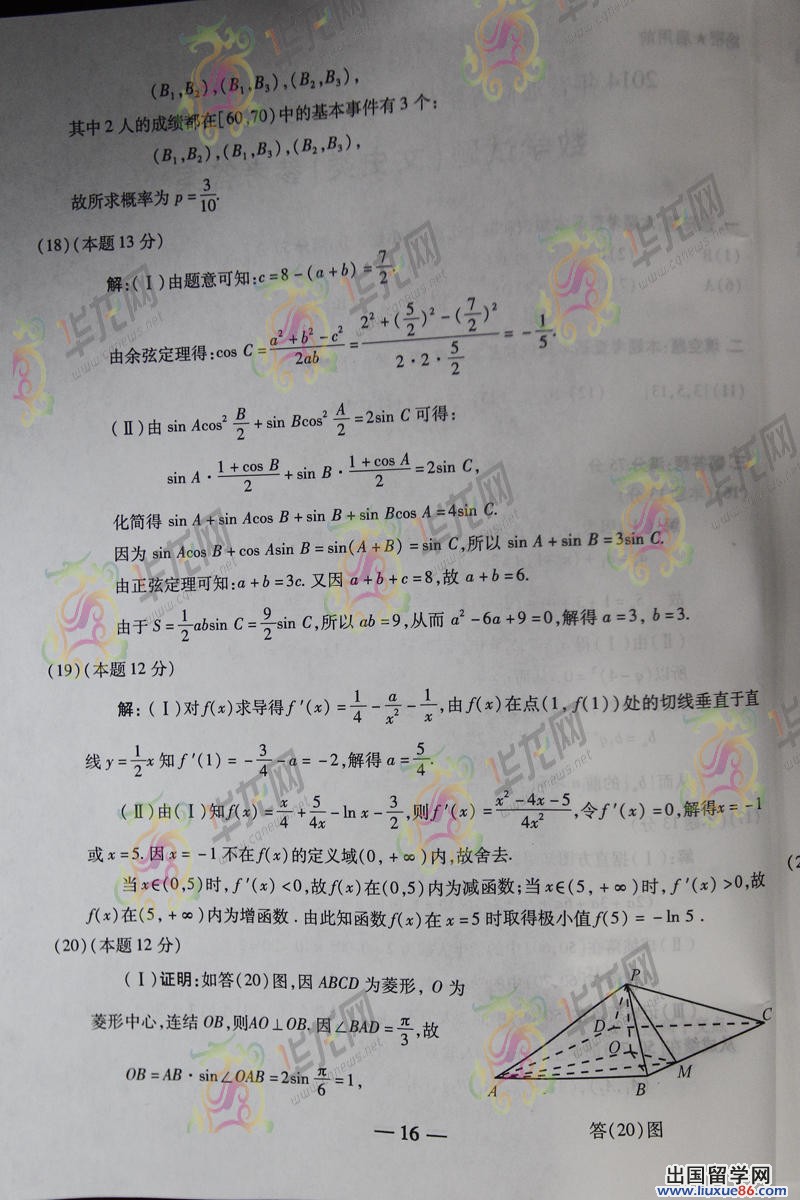 (B₁,B₂),(B₁,B₃),(B₂,B₃),
其中2人的成绩都在[60,70)中的基本事件有3个:
(B₁,B₂),(B₁,B₃),(B₂,B₃),
故所求概率为 p=3/10.
(18)(本题13分)
解:(Ⅰ)由题意可知:c=8-(a+b)=7/2.
由余弦定理得:cos C=(a²+b²-c²)/(2ab)=(2²+(5/2)²-(7/2)²)/(2·2·5/2)=-1/5.
(Ⅱ)由 sin Acos² B/2+sin Bcos² A/2=2sin C 可得:
sin A·(1+cos B)/2+sin B·(1+cos A)/2=2sin C,
化简得 sin A+sin Acos B+sin B+sin Bcos A=4sin C.
因为 sin Acos B+cos Asin B=sin(A+B)=sin C,所以 sin A+sin B=3sin C.
由正弦定理可知:a+b=3c. 又因 a+b+c=8,故 a+b=6.
由于 S=1/2 absin C=9/2 sin C,所以 ab=9,从而 a²-6a+9=0,解得 a=3, b=3.
(19)(本题12分)
解: (Ⅰ)对 f(x)求导得 f′(x)=1/4-a/x²-1/x,由 f(x)在点(1, f(1))处的切线垂直于直
线 y=1/2 x 知 f′(1)=-3/4-a=-2,解得 a=5/4.
(Ⅱ)由(Ⅰ)知 f(x)=x/4+5/(4x)-ln x-3/2,则 f′(x)=(x²-4x-5)/(4x²),令 f′(x)=0,解得x=-1
或 x=5. 因 x=-1 不在 f(x)的定义域(0,+∞)内,故舍去.
当 x∈(0,5)时, f′(x)<0,故 f(x)在(0,5)内为减函数;当 x∈(5,+∞)时, f′(x)>0,故
f(x)在(5,+∞)内为增函数. 由此知函数 f(x)在 x=5 时取得极小值 f(5)=-ln 5.
(20)(本题12分)
(Ⅰ)证明:如答(20)图,因 ABCD 为菱形, O 为
菱形中心,连结 OB,则AO⊥OB. 因∠BAD=π/3,故
OB=AB·sin∠OAB=2sin π/6=1,
P
D
C
O
A
B
M
答(20)图
— 16 —
华龙网
www.cqnews.net
出国留学网
www.liuxue86.com